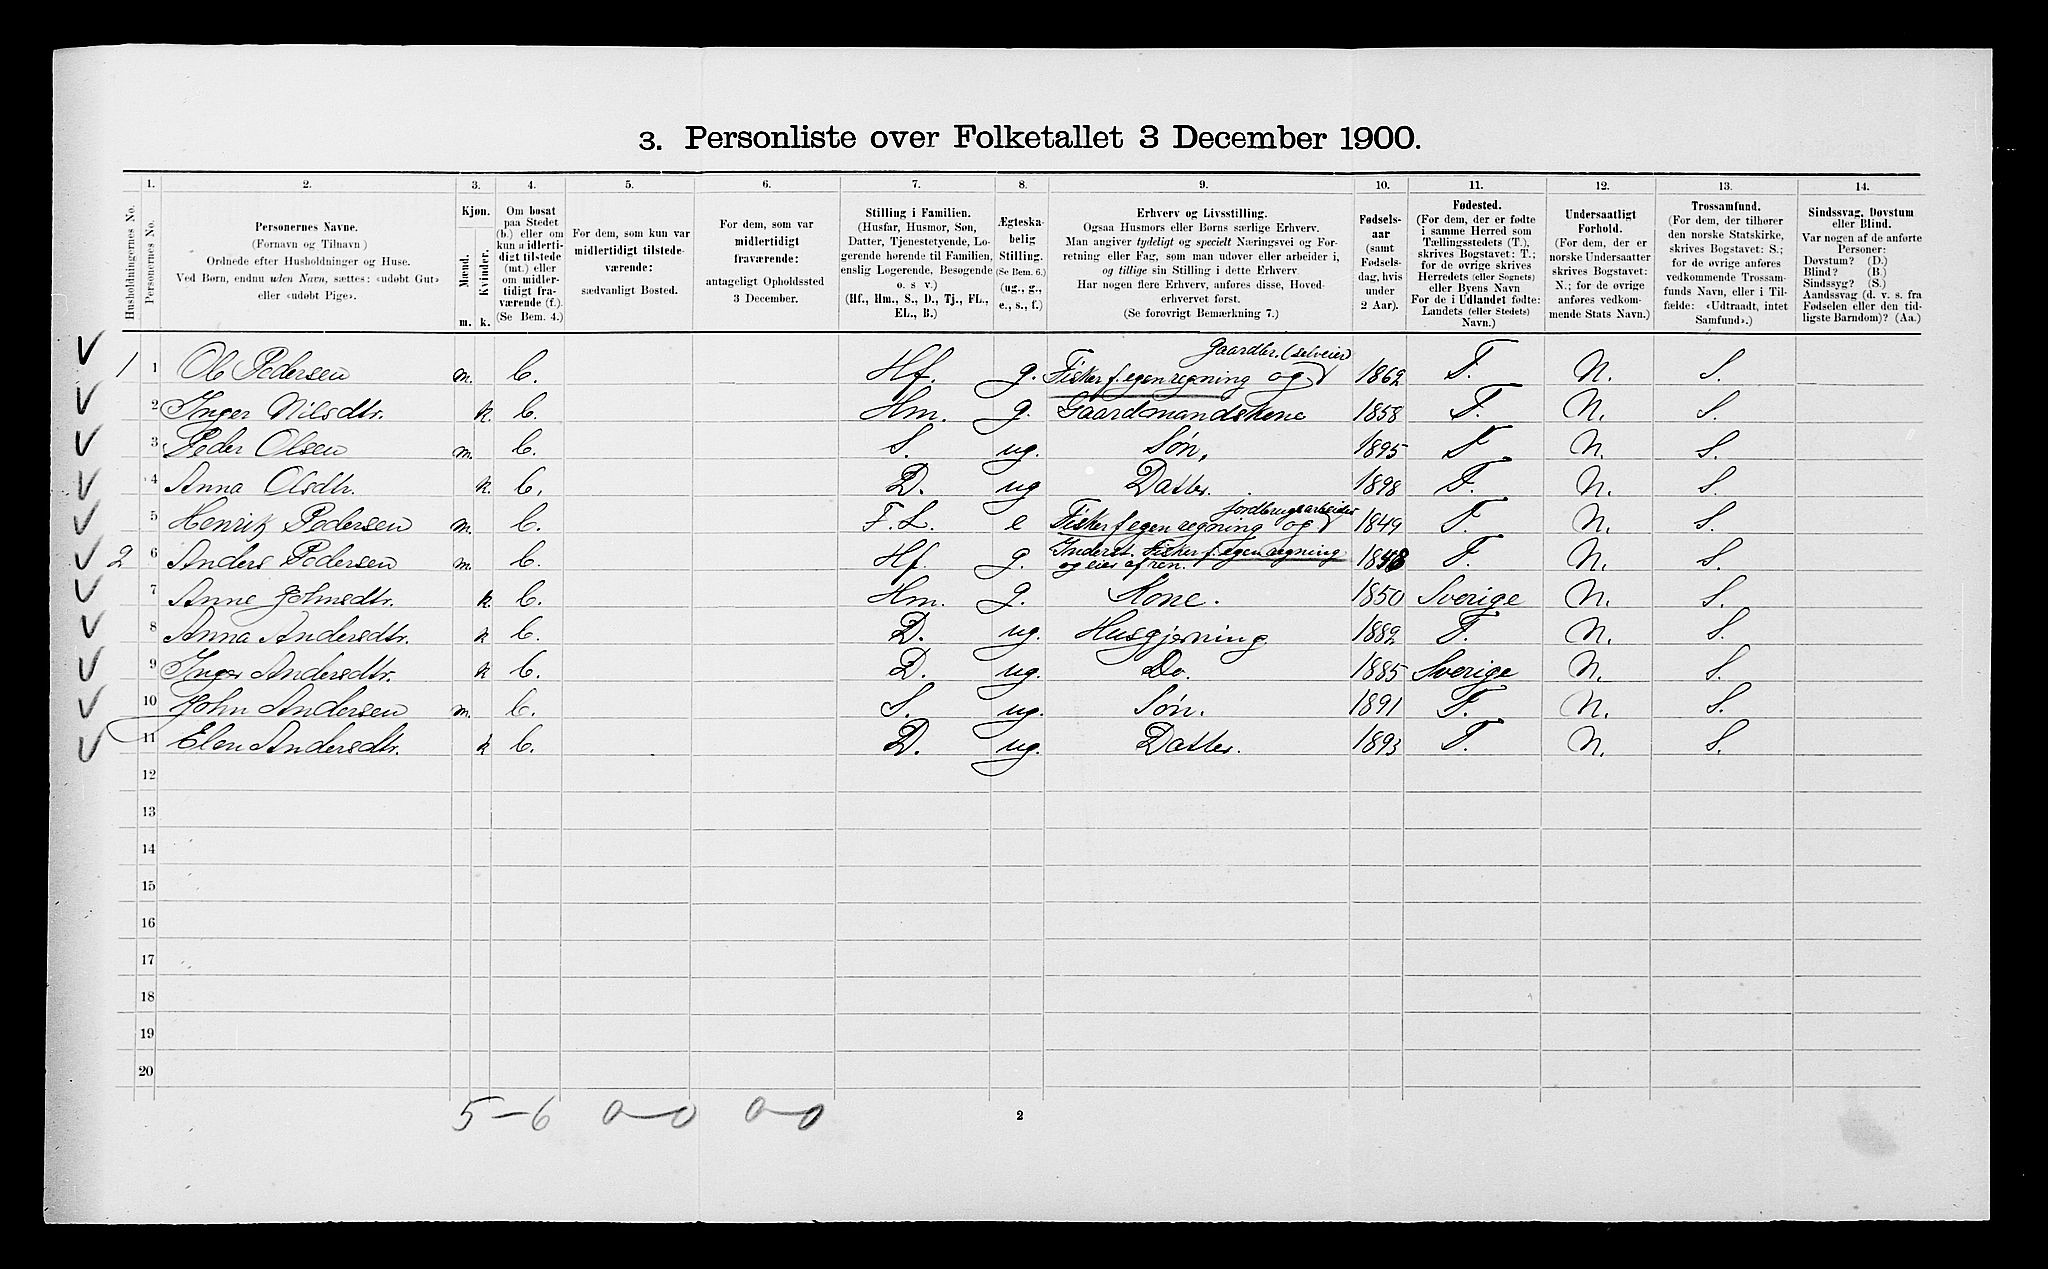 3. Personliste over Folketallet 3 December 1900.
Husholdningernes No.
1. Personernes No.
2. Personernes Navne.
(Fornavn og Tilnavn)
Ordnede efter Husholdninger og Huse.
Ved Børn, endnu uden Navn, sættes: «udøbt Gut»
eller «udøbt Pige».
3. Kjøn.
Mænd. Kvinder.
m. k.
4. Om bosat
paa Stedet
(b.) eller om
kun midlerti-
digt tilstede
(mt.) eller
om midler-
tidigt fra-
værende (f.).
(Se Bem. 4.)
5. For dem, som kun var
midlertidigt tilstede-
værende:
sædvanligt Bosted.
6. For dem, som var
midlertidigt
fraværende:
antageligt Opholdssted
3 December.
7. Stilling i Familien.
(Husfar, Husmor, Søn,
Datter, Tjenestetyende, Lo-
gerende hørende til Familien,
enslig Logerende, Besøgende
o. s v.)
(Hf., Hm., S., D., Tj., FL.,
EL., B.)
8. Ægteska-
belig
Stilling.
(Se Bem. 6.)
(ug., g.,
e., s., f.)
9. Erhverv og Livsstilling.
Ogsaa Husmors eller Børns særlige Erhverv.
Man angiver tydeligt og specielt Næringsvei og For-
retning eller Fag, som man udøver eller arbeider i,
og tillige sin Stilling i dette Erhverv.
Har nogen flere Erhverv, anføres disse, Hoved-
erhvervet først.
(Se forøvrigt Bemærkning 7.)
10. Fødsels-
aar
(samt
Fødsels-
dag, hvis
under
2 Aar).
11. Fødested.
(For dem, der er fødte
i samme Herred som
Tællingsstedets (T.),
skrives Bogstavet: T.;
for de øvrige skrives
Herredets (eller Sognets)
eller Byens Navn
For de i Udlandet fødte:
Landets (eller Stedets)
Navn.)
12. Undersaatligt
Forhold.
(For dem, der er
norske Undersaatter
skrives Bogstavet:
N.; for de øvrige
anføres vedkom-
mende Stats Navn.)
13. Trossamfund.
(For dem, der tilhører
den norske Statskirke,
skrives Bogstavet: S.;
for de øvrige anføres
vedkommende Trossam-
funds Navn, eller i Til-
fælde: «Udtraadt, intet
Samfund».)
14. Sindssvag, Døvstum
eller Blind.
Var nogen af de anførte
Personer:
Døvstum? (D.)
Blind? (B.)
Sindssyg? (S.)
Aandssvag (d. v. s. fra
Fødselen eller den tid-
ligste Barndom)? (Aa.)
gaardbr. (selveier)
1 1 Ole Pedersen m. b. Hf. g. Fisker f. egen regning og 1862 T. N. S.
2 Inger Nilsdtr. k. b. Hm. g. Gaardmandskone 1858 T. N. S.
3 Peder Olsen m. b. S. ug. Søn, 1895 T. N. S.
4 Anna Olsdtr. k. b. D. ug Datter. 1898 T. N. S.
jordbrugsarbeider
5 Henrik Pedersen m. b. F.L. e Fisker f egen regning og 1849 T. N. S.
2 6 Anders Pedersen m. b. Hf. g. Inderst. Fisker f. egen regning
og eier af ren. T. N. S.
7 Anne Johnsdtr. k. b. Hm. g. Kone. 1850 Sverige N. S.
8 Anna Andersdtr. k b. D. ug. Husgjerning 1882 T. N. S.
9 Inger Andersdtr. k b. D. ug. Do. 1885 Sverige N. S.
10 John Andersen m. b. S. ug. Søn. 1891 T. N. S.
11 Elen Andersdtr. k b. D. ug. Datter. 1893 T. N. S.
12
13
14
15
16
17
18
19
20
5-6 0-0 0-0
2